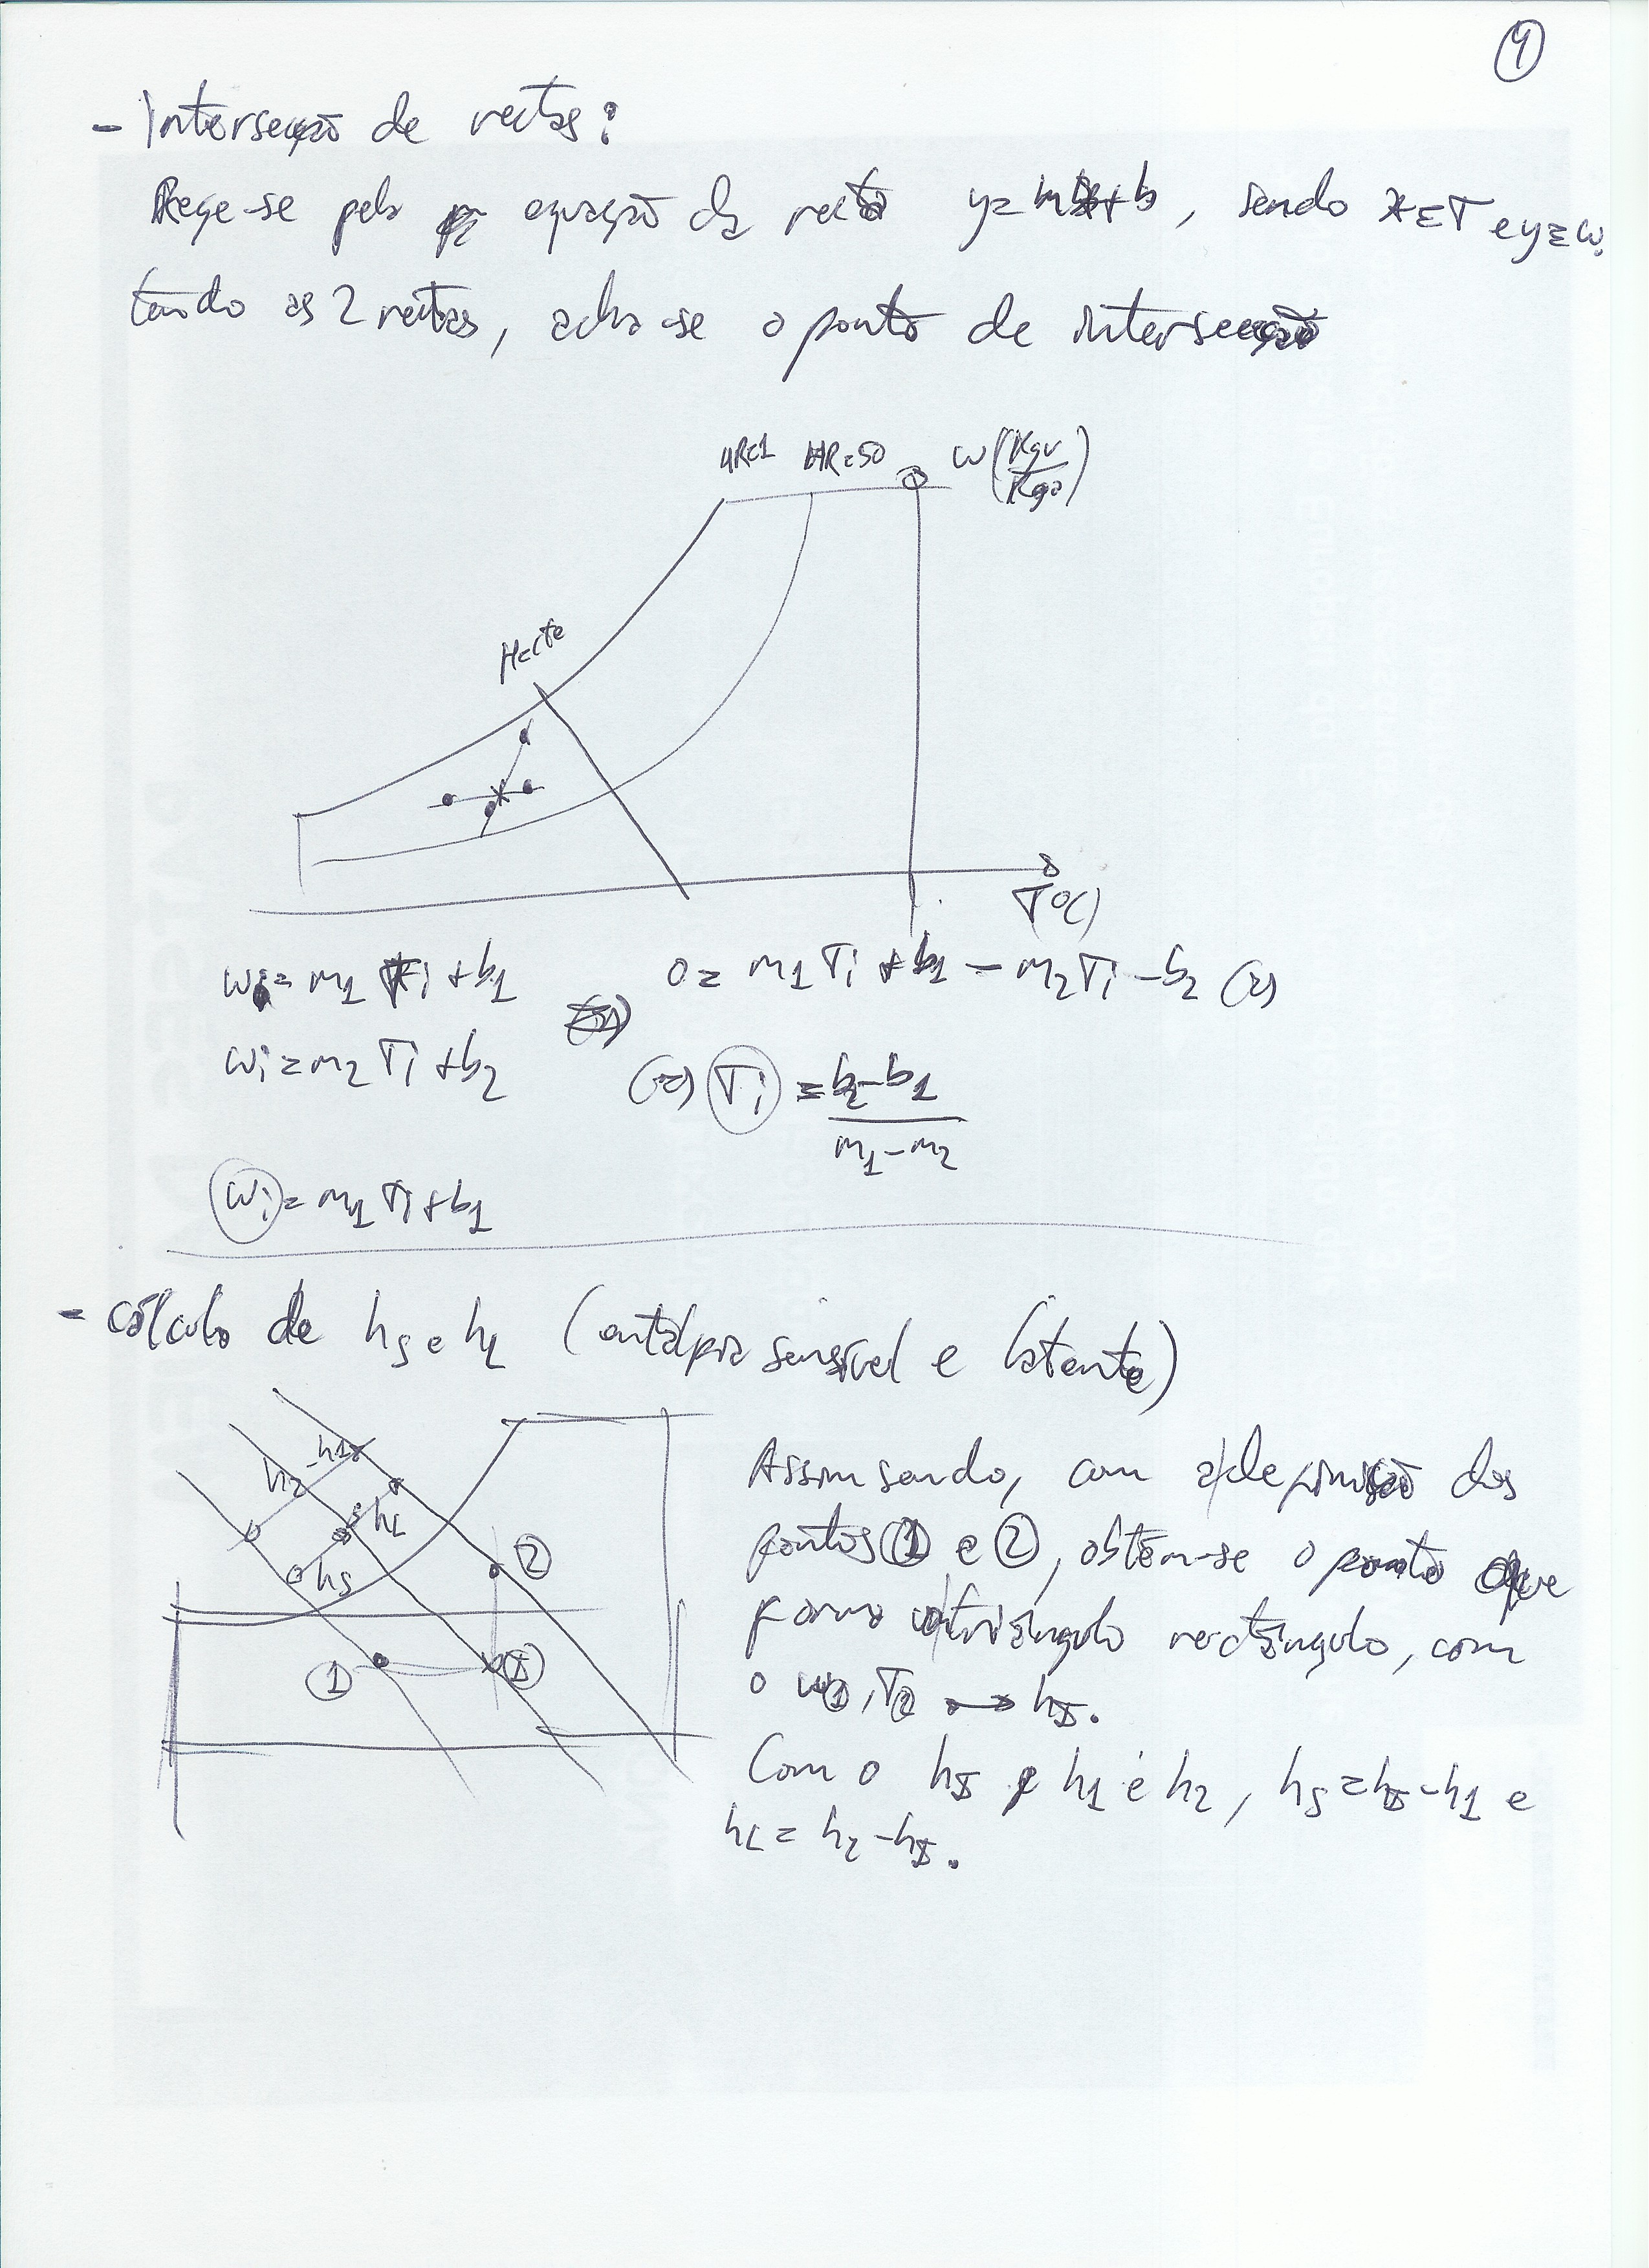 9
- Intersecção de rectas:
Rege-se pela equação da recta y=mx+b, sendo x≡T e y≡w.
tendo as 2 rectas, acha-se o ponto de intersecção
HR=1 HR=50 w(Kgv/Kga)
H=cte
T(ºC)
wi=m1 Ti +b1 0= m1 Ti +b1 - m2Ti -b2 (=)
wi=m2 Ti +b2 (=) Ti = b2-b1/m1-m2
wi= m1 Ti+b1
- cálculo de hs e hL (entalpia sensível e latente)
h2-h1
hL
hs
2
1
I
Assim sendo, com a definição dos
pontos 1 e 2, obtém-se o ponto que
forma o triângulo rectângulo, com
o w1, T2 → hI.
Com o hI, h1 e h2, hs=hI-h1 e
hL= h2-hI.